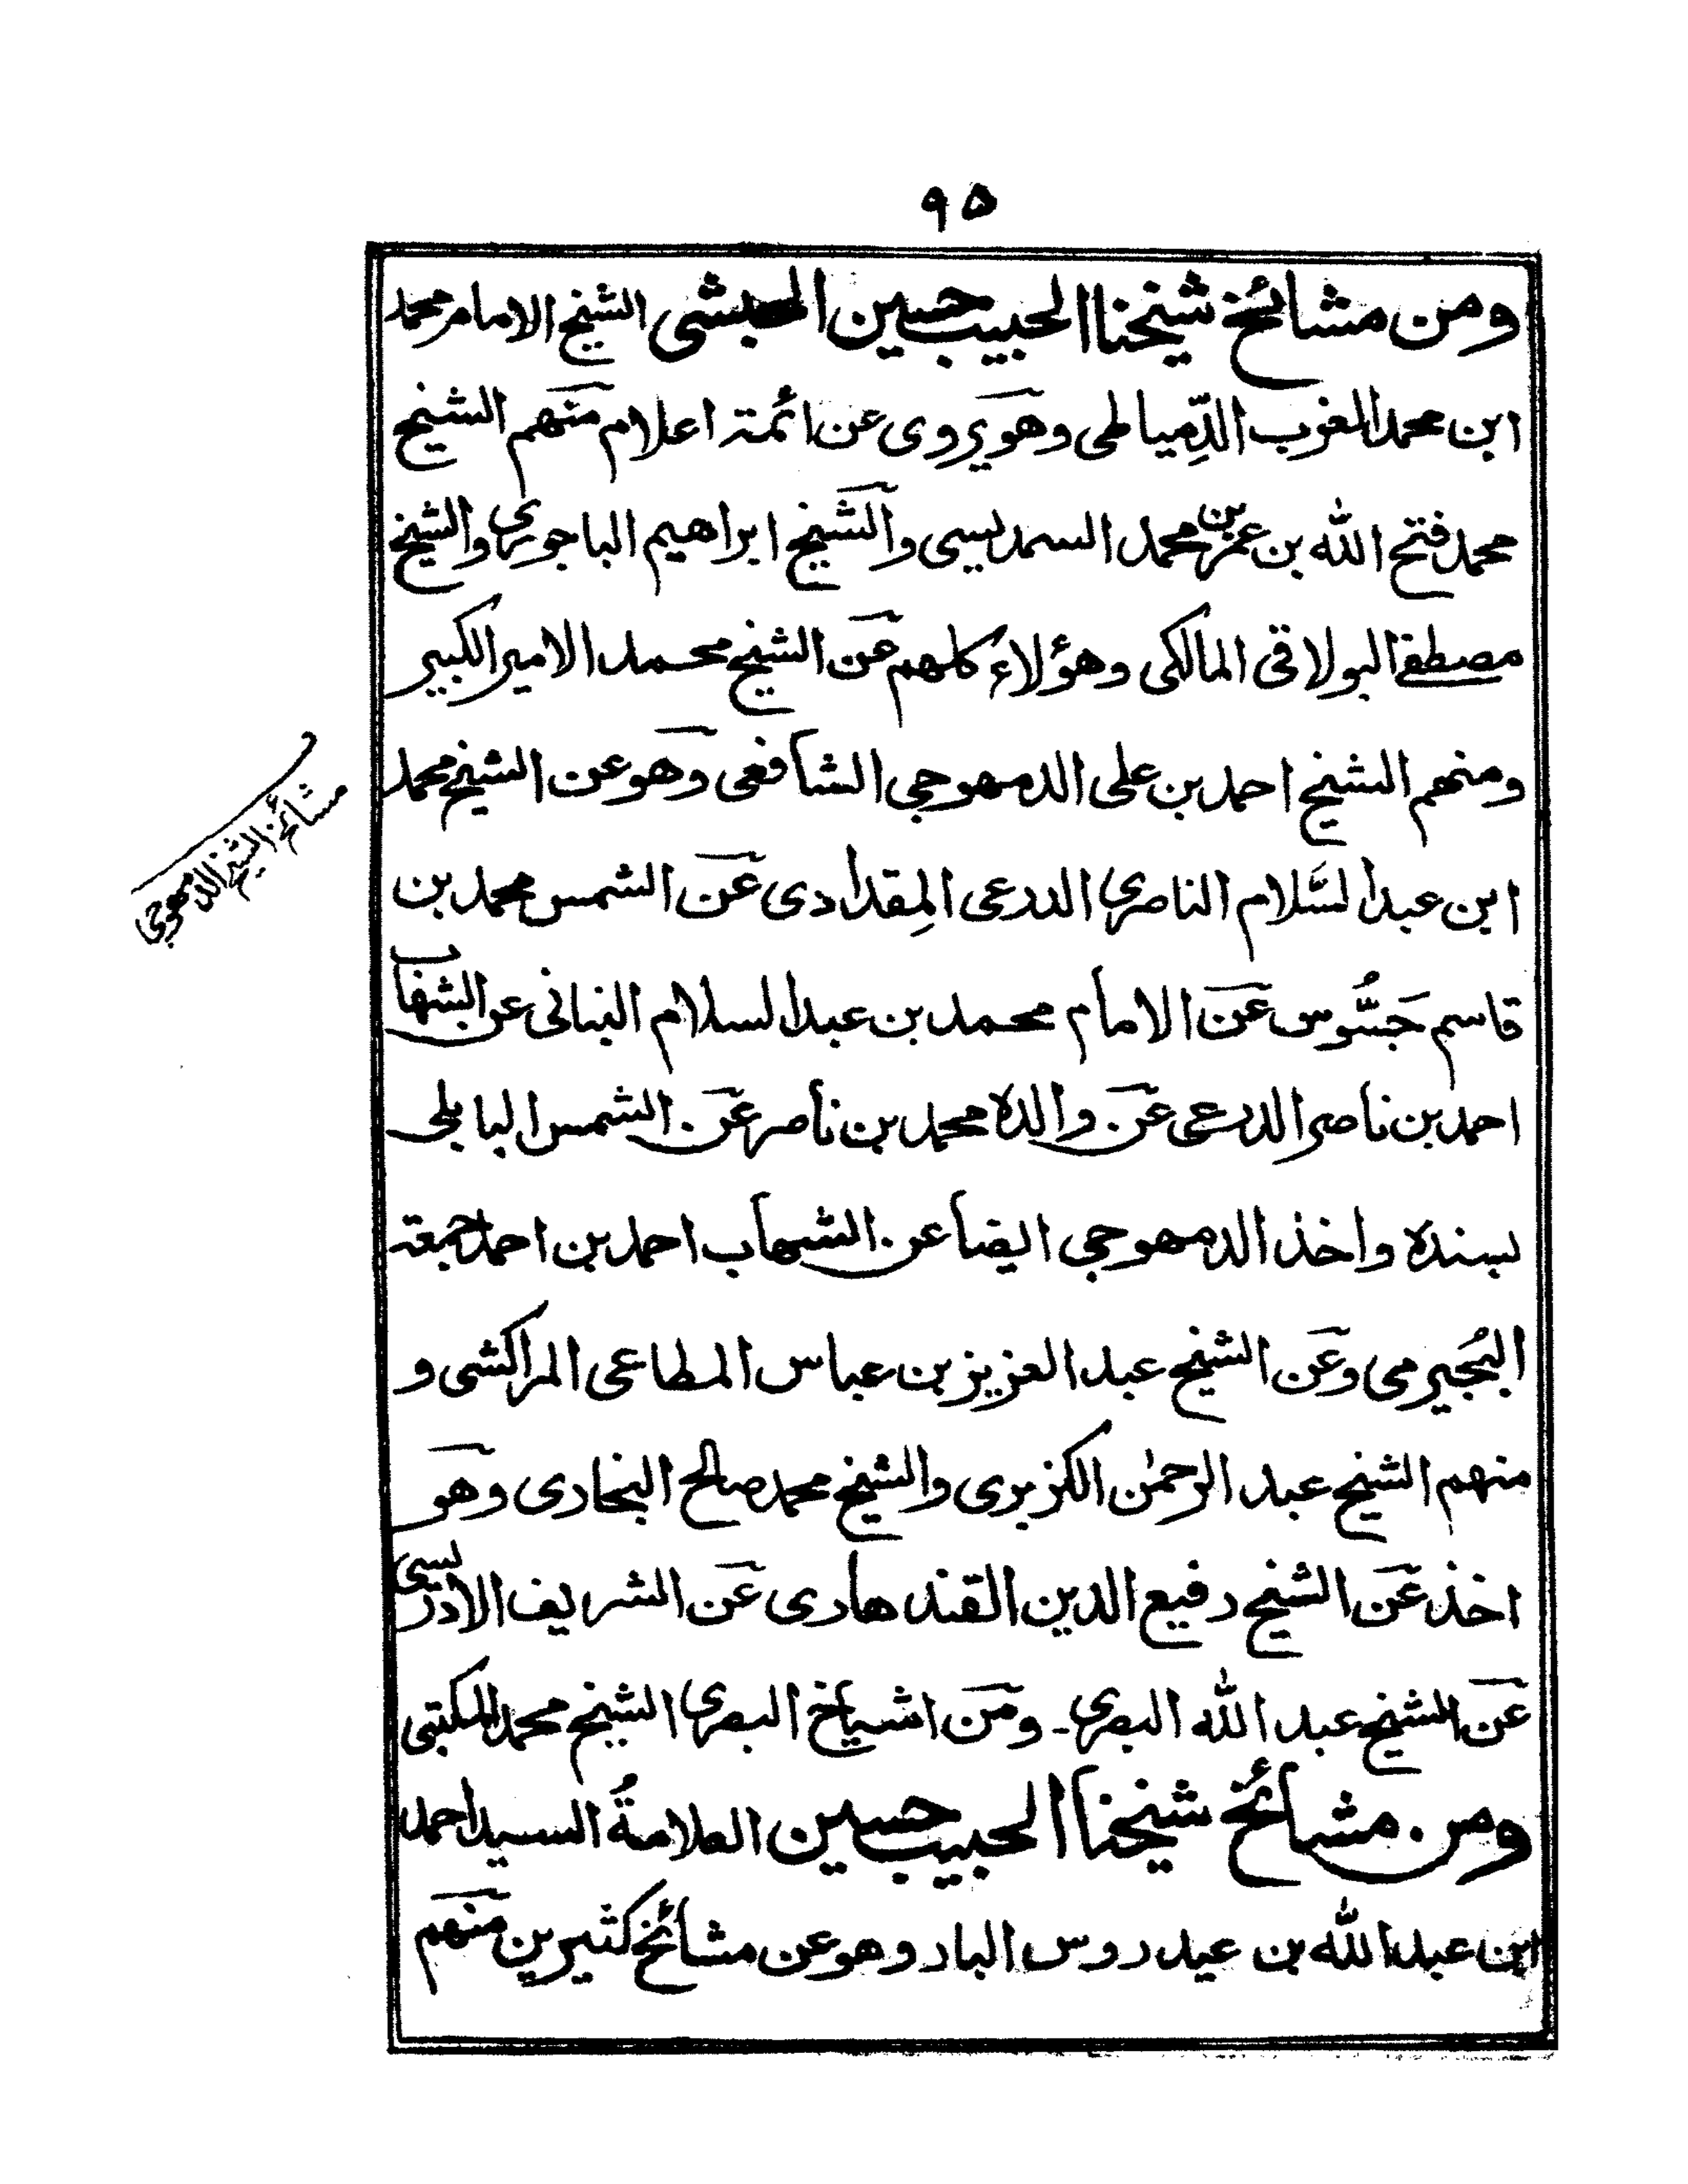 ٩٥
ومن مشائخ شيخنا الحبيب حسين الحبشى الشيخ الامام محمد
ابن محمد المغرب الدِّمياطى وهو يروى عن ائمة اعلام منهم الشيخ
محمد فتح الله بن عمر بن محمد السمديسى والشيخ ابراهيم الباجورى والشيخ
مصطفے البولاقى المالكى وهؤلاء كلهم عن الشيخ محمد الامير الكبير
ومنهم الشيخ احمد بن على الدمهوجى الشافعى وهو عن الشيخ محمد
ابن عبد السَّلام الناصرى الدرعى المِقدادى عن الشمس محمد بن
قاسم جَسُّوس عن الامام محمد بن عبد السلام البنانى عن الشهاب
احمد بن ناصر الدرعى عن والده محمد بن ناصر عن الشمس البابلى
بسنده واخذ الدمهوجى ايضا عن الشهاب احمد بن احمد جمعة
البُجيرمى وعن الشيخ عبد العزيز بن عباس المطاعى المراكشى و
منهم الشيخ عبد الرحمٰن الكزبرى والشيخ محمد صالح البخارى وهو
اخذ عن الشيخ رفيع الدين القندهارى عن الشريف الادريسى
عن الشيخ عبد الله البصرى۔ ومن اشياخ البصرى الشيخ محمد المكتبى
ومن مشائخ شيخنا الحبيب حسين العلامةُ السيد احمد
ابن عبد الله بن عيدروس البار وهو عن مشائخ كثيرين منهم
مشائخ الشيخ الدمهوجى